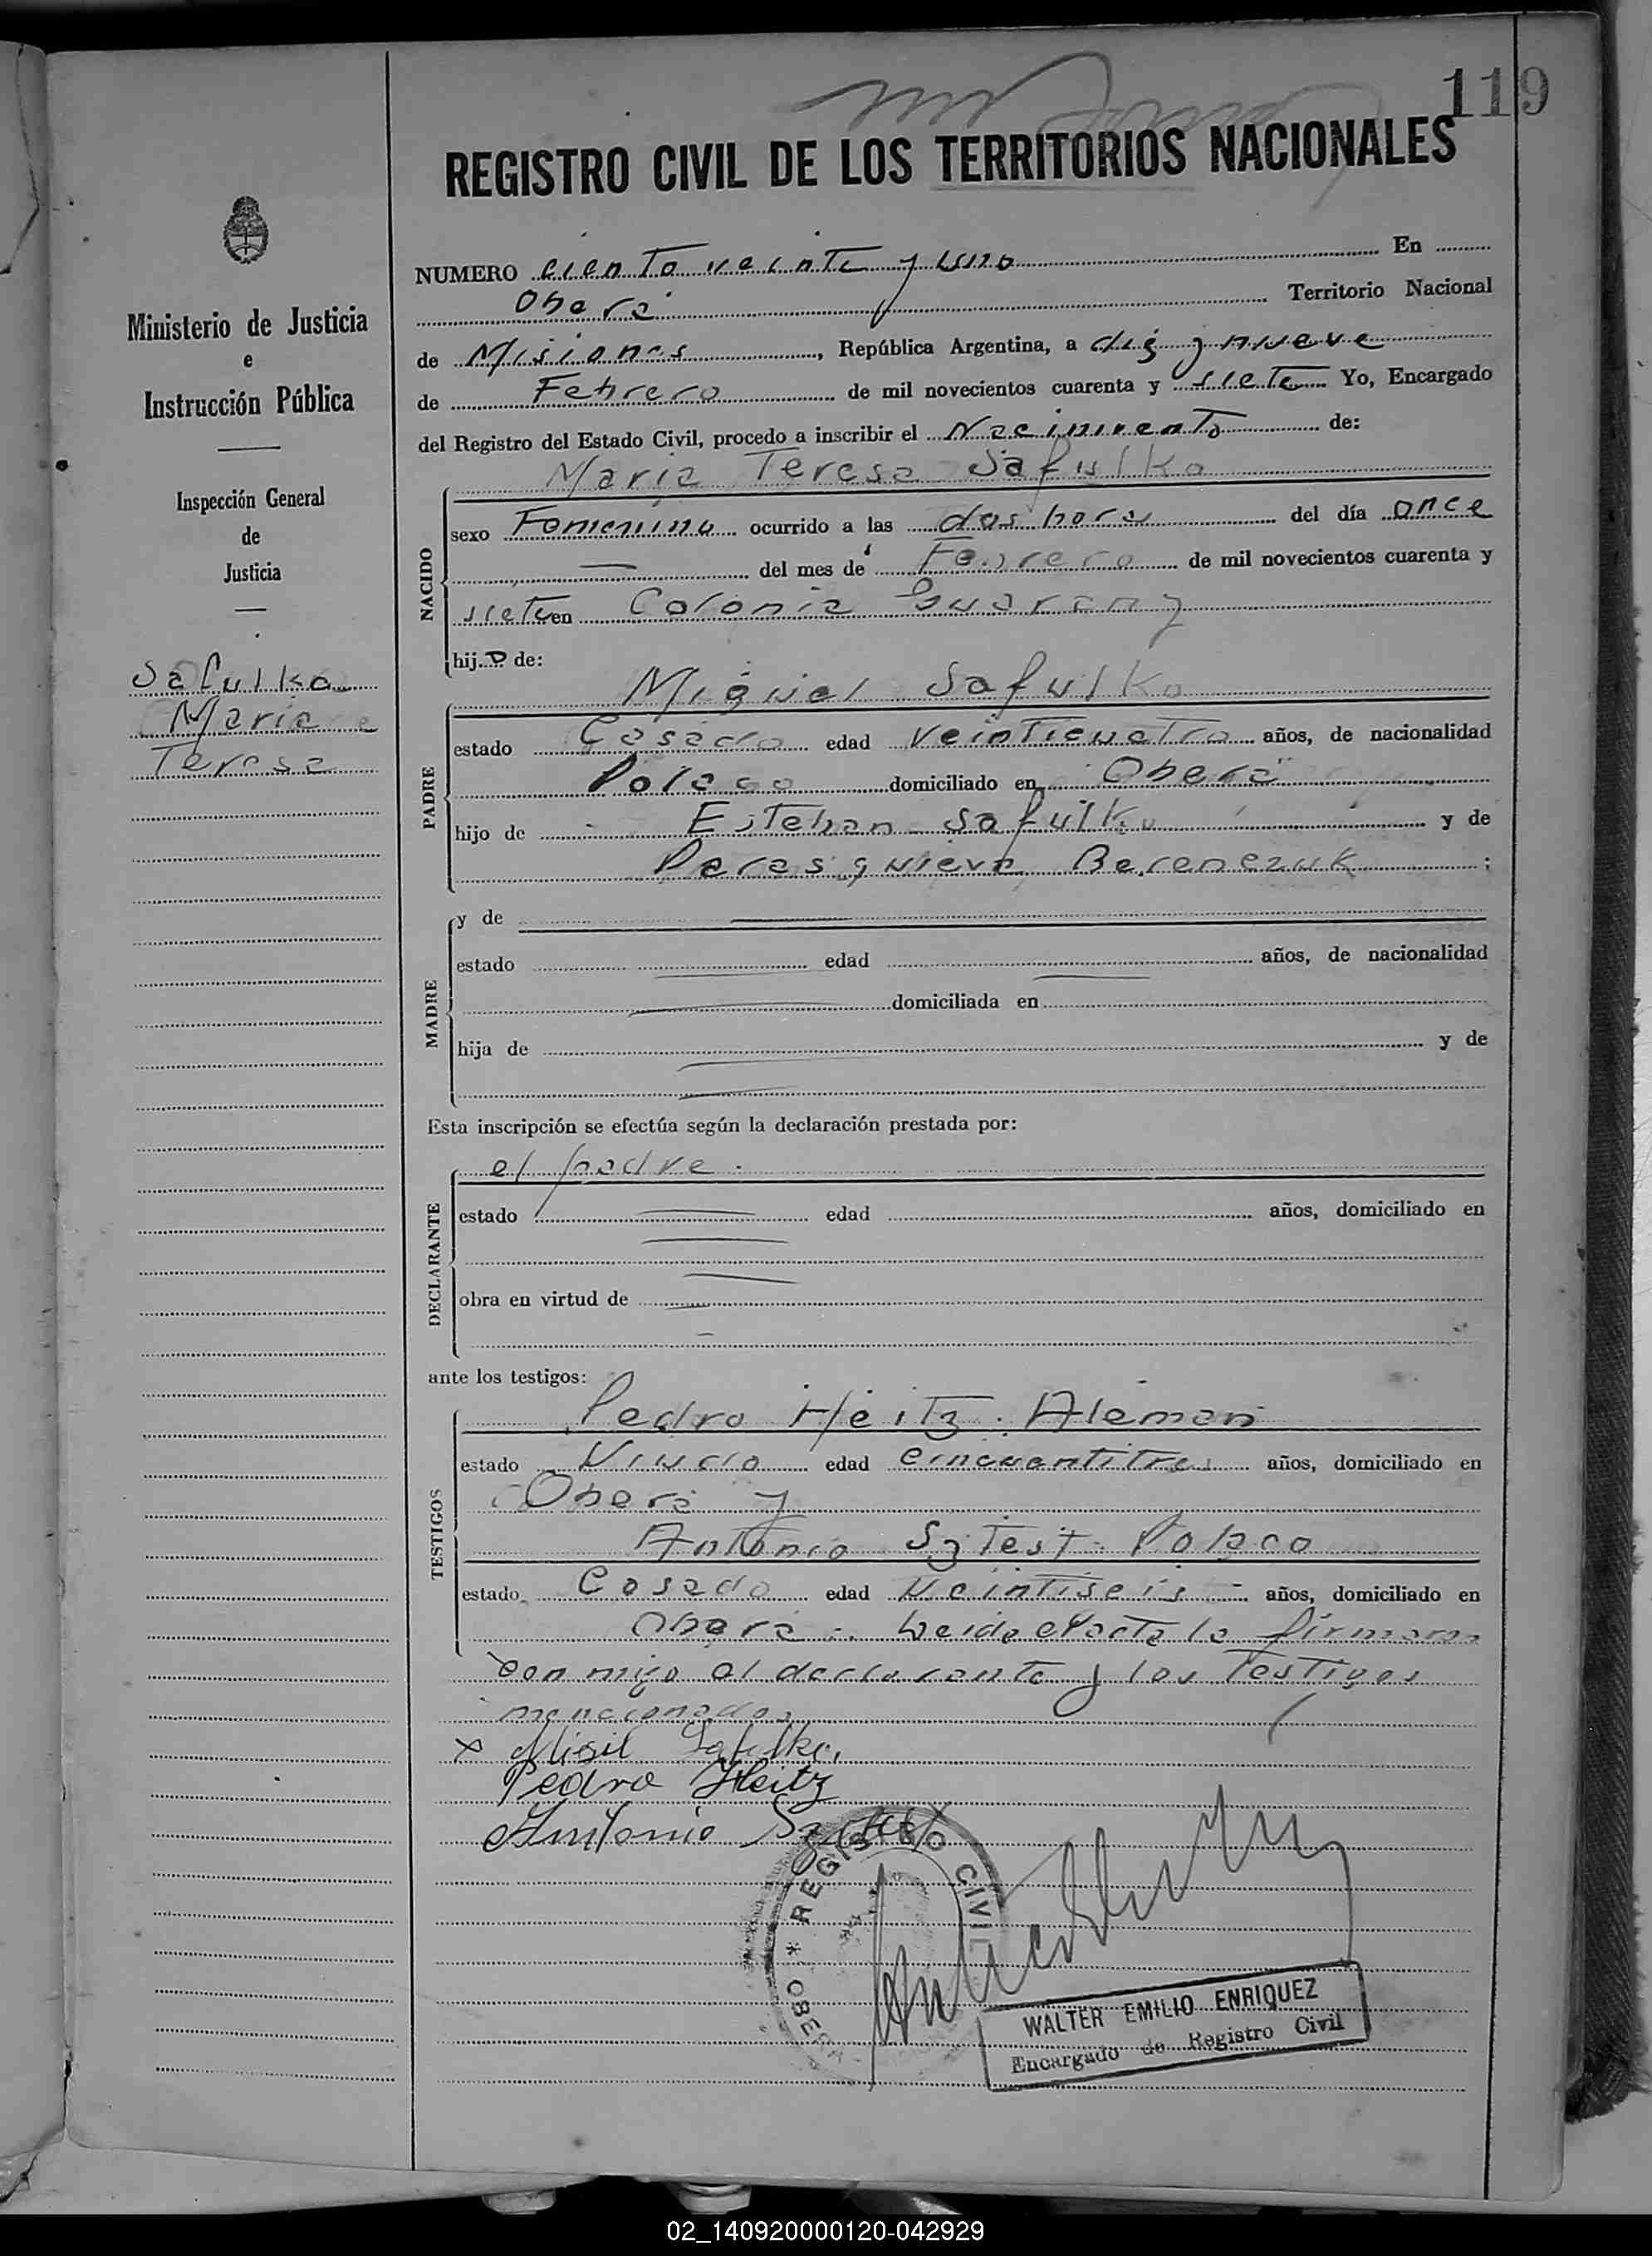 119
REGISTRO CIVIL DE LOS TERRITORIOS NACIONALES
Ministerio de Justicia
e
Instrucción Pública
Inspección General
de
Justicia
Safulka
Maria
Teresa
NUMERO ciento veinte y uno En
Oberá Territorio Nacional
de Misiones, República Argentina, a diez y nueve
de Febrero de mil novecientos cuarenta y siete Yo, Encargado
del Registro del Estado Civil, procedo a inscribir el Nacimiento de:
NACIDO
Maria Teresa Safulka
sexo Femenino ocurrido a las dos horas del día once
del mes de Febrero de mil novecientos cuarenta y
siete en Colonia Guarany
hij.a de:
PADRE
Miguel Safulko
estado Casado edad veinticuatro años, de nacionalidad
Polaco domiciliado en Oberá
hijo de Esteban Safulko y de
Parasquieva Berenczuk ;
MADRE
y de
estado edad años, de nacionalidad
domiciliada en
hija de y de
Esta inscripción se efectúa según la declaración prestada por:
DECLARANTE
el padre.
estado edad años, domiciliado en
obra en virtud de
ante los testigos:
TESTIGOS
Pedro Heitz. Aleman
estado Viudo edad cincuantitres años, domiciliado en
Oberá y
Antonio Sztest. Polaco
estado Casado edad Veintiseis años, domiciliado en
Oberá. Leida el acta la firmaron
con migo el declarante y los Testigos
mencionados
x Migil Safulko.
Pedro Heitz
Antonio Sztest
* REGISTRO CIVIL * OBERA
WALTER EMILIO ENRIQUEZ
Encargado de Registro Civil
02_140920000120-042929